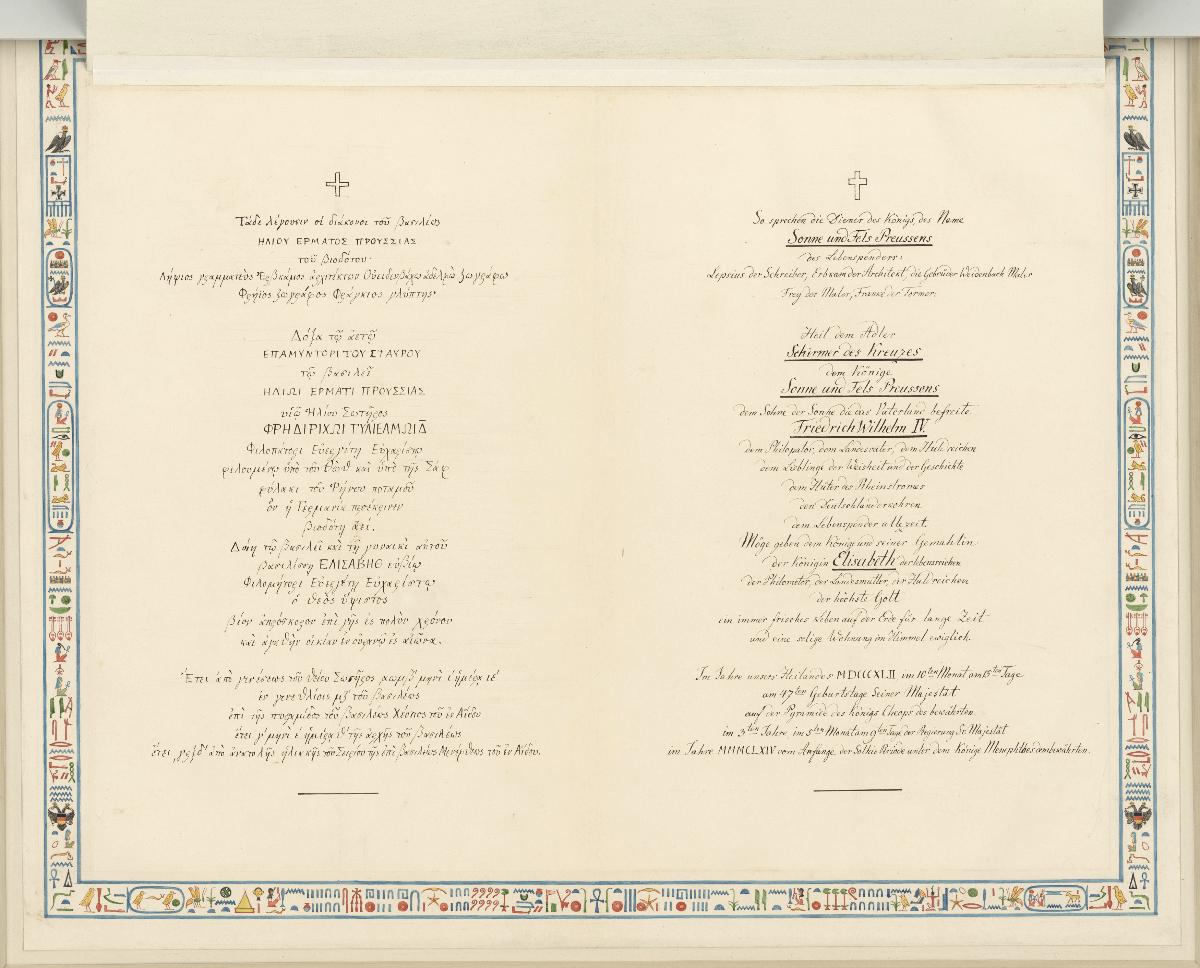 Τάδε λέγουσιν οἱ διάκονοι τοῦ βασιλέως
ΗΛΙΟΥ ΕΡΜΑΤΟΣ ΠΡΟΥΣΣΙΑΣ
τοῦ βιοδότου·
Λήψιος γραμματεὺς Ἐρβκάμος ἀρχιτέκτων Οὐειδενβάχω ἀδελφὼ ζωγράφω
Φρήϊος ζωγράφος Φράγκιος γλύπτης·
Δόξα τῷ ἀετῷ
ΕΠΑΜΥΝΤΟΡΙ ΤΟΥ ΣΤΑΥΡΟΥ
τῷ βασιλεῖ
ΗΛΙΩΙ ΕΡΜΑΤΙ ΠΡΟΥΣΣΙΑΣ
υἱῷ Ἡλίου Σωτῆρος
Φιλοπάτορι Εὐεργέτῃ Εὐχαρίστῳ
φιλουμένῳ ὑπὸ τοῦ Θωὺθ καὶ ὑπὸ τῆς Σάφ
φύλακι τοῦ Ῥήνου ποταμοῦ
ὃν ἡ Γερμανία προέκρινεν
βιοδότῃ ἀεί.
Δῴη τῷ βασιλεῖ καὶ τῇ γυναικὶ αὐτοῦ
βασιλίσσῃ ΕΛΙΣΑΒΗΘ
Φιλομήτορι Εὐεργέτῃ Εὐχαρίστῳ
ὁ θεὸς ὕψιστος
βίον ἀπρόσκορον ἐπὶ γῆς ἐς πολὺν χρόνον
καὶ ἀγαθὴν οἰκίαν ἐν οὐρανῷ ἐς αἰῶνα.
Ἔτει ἀπὸ γενέσεως τοῦ θείου Σωτῆρος αωμβʹ μηνὶ ιʹ ἡμέρᾳ ιεʹ
ἐν γενεθλίοις μζʹ τοῦ βασιλέως
ἐπὶ τῆς πυραμίδος τοῦ βασιλέως Χέοπος τοῦ ἐν Ἀΐδου
ἔτει γʹ μηνὶ εʹ ἡμέρᾳ θʹ τῆς ἀρχῆς τοῦ βασιλέως
ἔτει γρξδʹ ἀπὸ ἀνατολῆς ἡλιακῆς τοῦ Σειρίου τῆς ἐπὶ βασιλέως Μενέφθεως τοῦ ἐν Ἀΐδου.
So sprechen die Diener des Königs, des Name
Sonne und Fels Preussens
des Lebenspenders:
Lepsius der Schreiber, Erbkam der Architekt, die Gebrüder Weidenbach Maler
Frey der Maler, Franke der Former:
Heil dem Adler
Schirmer des Kreuzes
dem Könige
Sonne und Fels Preussens
dem Sohne der Sonne die das Vaterland befreite
Friedrich Wilhelm IV.
dem Philopator, dem Landesvater, dem Huldreichen
dem Lieblinge der Weisheit und der Geschichte
dem Hüter des Rheinstromes
den Deutschland erkohren
dem Lebenspender allezeit.
Möge geben dem Könige und seiner Gemahlin
der Königin Elisabeth der lebensreichen
der Philometor, der Landesmutter, der Huldreichen
der höchste Gott
ein immer frisches Leben auf der Erde für lange Zeit
und eine selige Wohnung im Himmel ewiglich.
Im Jahre unsers Heilandes MDCCCXLII im 10ten Monat am 15ten Tage
am 47ten Geburtstage Seiner Majestät
auf der Pyramide des Königs Cheops des bewährten
im 3ten Jahre, im 5ten Monat am 9ten Tage der Regierung Sr. Majestät
im Jahre MMMCLXIV vom Anfange der Sothis-Periode unter dem Könige Menephthes dem bewährten.